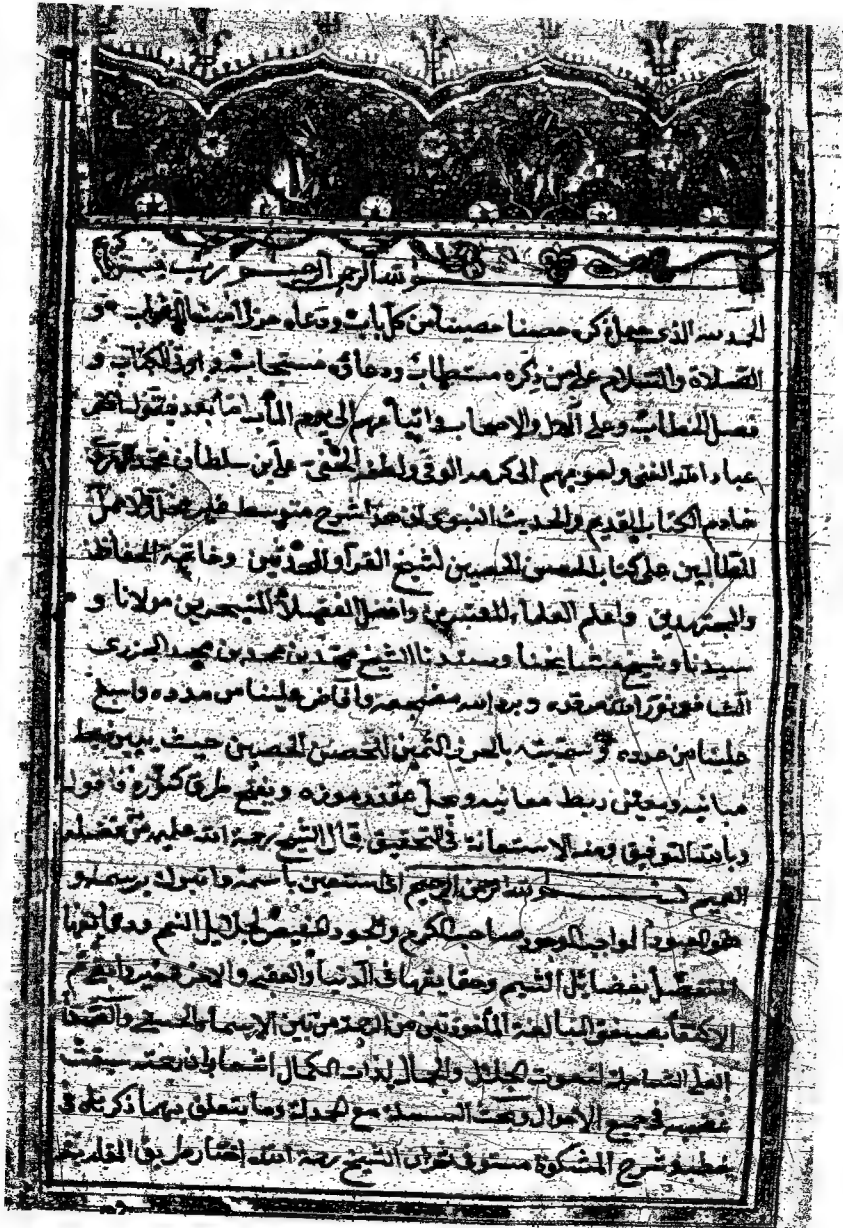 بسم الله الرحمن الرحيم رب
الحمد لله الذي جعل ذكره حصنا حصينا من كل باب ودعاه حرزا و
الصلاة والسلام على من ذكره مستطاب ودعاؤه مستجاب و اوتي الكتاب و
فصل الخطاب وعلى الآل والاصحاب واتباعهم الى يوم المآب اما بعد فيقول افقر
عباد الله الغني واحوجهم الى كرمه الوفي ولطفه الخفي علي بن سلطان محمد الهروي
خادم الكتاب القديم والحديث النبوي ان هذا شرح متوسط غير مخل ولا ممل
للطالبين على كتاب الحصن الحصين لشيخ القراء والمحدثين وخاتمة الحفاظ
والمجتهدين واعلم العلماء المعتبرين وافضل الفضلاء المتبحرين مولانا و
سيدنا وشيخ مشايخنا وسندنا الشيخ محمد بن محمد بن محمد الجزري
الشافعي نور الله مرقده وبرد الله مضجعه وافاض علينا من مدده واسبغ
علينا من عدده وسميته بالحرز الثمين للحصن الحصين حيث يبين ضبط
مبانيه ويعتنى ربط معانيه ويحل عقد رموزه ويفتح طرق كنوزه فاقول
وبالله التوفيق ومنه الاستعانة في التحقيق قال الشيخ رحمة الله عليه من فضله
العميم بسم الله الرحمن الرحيم اي استعين باسمه واتبرك برسمه و
هو المعبود الواجب الوجود صاحب الكرم والجود المفيض لجلائل النعم ودقائقها
المتفضل بفضايل الشيم وحقايقها في الدنيا والعقبى والاخرة خير وابقى ثم
الاكتفاء بصيغتي المبالغة المأخوذتين من الرحمة من بين الاسماء الحسنى والصفات
العلى الشاملة لنعوت الجلال والجمال لذات الكمال اشعار بان رحمته سبقت
غضبه في جميع الاحوال وبحث البسملة مع الحمدلة وما يتعلق بهما ذكرناه في
شرح المشكوة مستوفى الشيخ رحمة الله اختار طريق